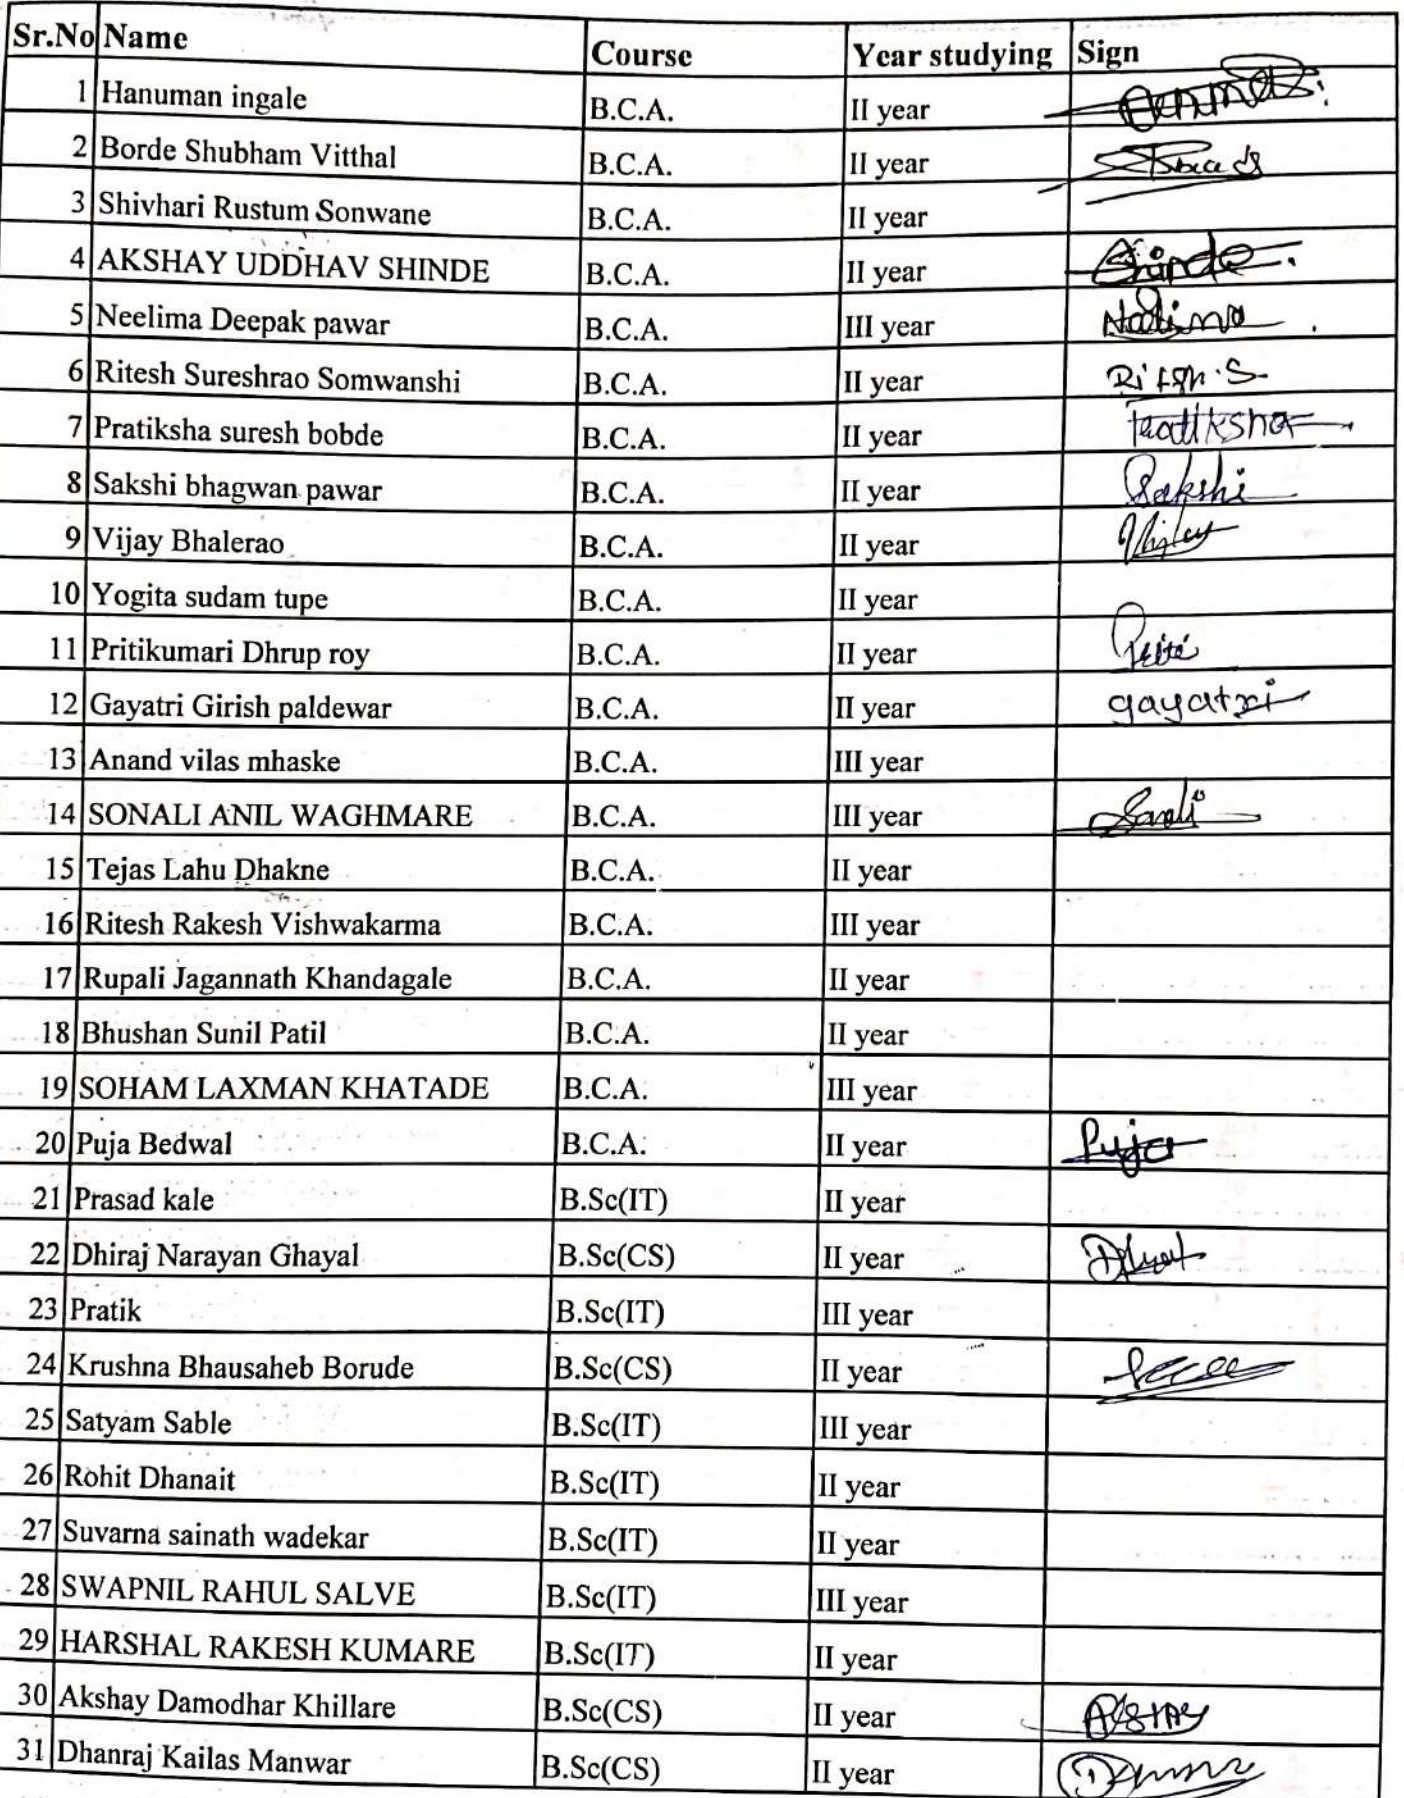 Sr.No Name Course Year studying Sign
1 Hanuman ingale B.C.A. II year
2 Borde Shubham Vitthal B.C.A. II year
3 Shivhari Rustum Sonwane B.C.A. II year
4 AKSHAY UDDHAV SHINDE B.C.A. II year Shinde
5 Neelima Deepak pawar B.C.A. III year
6 Ritesh Sureshrao Somwanshi B.C.A. II year
7 Pratiksha suresh bobde B.C.A. II year Pratiksha
8 Sakshi bhagwan pawar B.C.A. II year Sakshi
9 Vijay Bhalerao B.C.A. II year Vijay
10 Yogita sudam tupe B.C.A. II year
11 Pritikumari Dhrup roy B.C.A. II year Priti
12 Gayatri Girish paldewar B.C.A. II year gayatri
13 Anand vilas mhaske B.C.A. III year
14 SONALI ANIL WAGHMARE B.C.A. III year
15 Tejas Lahu Dhakne B.C.A. II year
16 Ritesh Rakesh Vishwakarma B.C.A. III year
17 Rupali Jagannath Khandagale B.C.A. II year
18 Bhushan Sunil Patil B.C.A. II year
19 SOHAM LAXMAN KHATADE B.C.A. III year
20 Puja Bedwal B.C.A. II year Puja
21 Prasad kale B.Sc(IT) II year
22 Dhiraj Narayan Ghayal B.Sc(CS) II year
23 Pratik B.Sc(IT) III year
24 Krushna Bhausaheb Borude B.Sc(CS) II year
25 Satyam Sable B.Sc(IT) III year
26 Rohit Dhanait B.Sc(IT) II year
27 Suvarna sainath wadekar B.Sc(IT) II year
28 SWAPNIL RAHUL SALVE B.Sc(IT) III year
29 HARSHAL RAKESH KUMARE B.Sc(IT) II year
30 Akshay Damodhar Khillare B.Sc(CS) II year
31 Dhanraj Kailas Manwar B.Sc(CS) II year